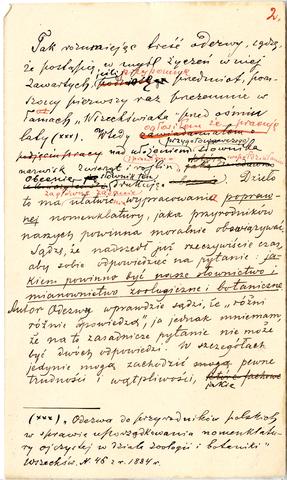 2.
Tak rozumiejąc treść odezwy, sądzę,
że postąpię w myśl życzeń w niej
zawartych, jeśli przypomnę
przedmiot, poru-
szony pierwszy raz przezemnie w
łamach „Wszechświata" przed ośmiu
laty (xxx). Wtedy ogłosiłem że pracuję
nad ułożeniem Słownika
nazwisk zwierząt i roślin
Obecnie słownik ten
drukuję. Dzieło
to ma ułatwić wypracowanie popraw-
nej nomenklatury, jaka przyrodników
naszych powinna moralnie obowiązywać.
Sądzę, że nadszedł już rzeczywiście czas,
aby sobie odpowiedzieć na pytanie: ja-
kiem powinno być nasze słownictwo i
mianownictwo zoologiczne i botaniczne
Autor Odezwy wprawdzie sądzi, że „różni
różnie opowiedzą", ja jednak mniemam,
że na to zasadnicze pytanie nie może
być dwóch odpowiedzi. W szczegółach
jedynie mogą zachodzić pewne
trudności i wątpliwości,
jakie
(xxx) „Odezwa do przyrodników polskich
w sprawie uporządkowania nomenklatu-
ry ojczystej w dziale zoologii i botaniki"
Wszechśw. N. 46 z r. 1884 r.